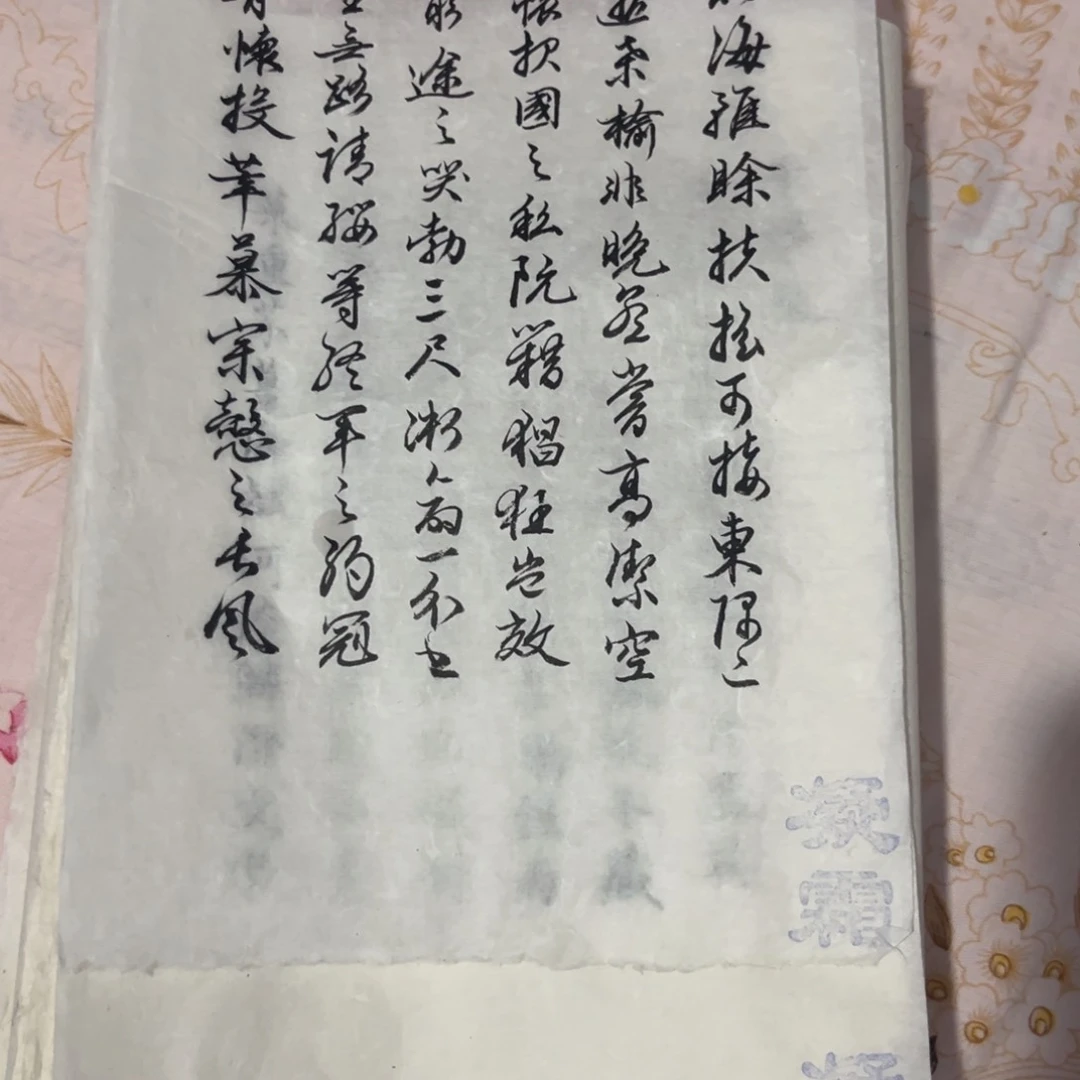 海雖賒扶搖可接東隅已
逝桑榆非晚孟嘗高潔空
懷报國之私阮籍猖狂豈效
窮途之哭勃三尺微命一介書
生無路請纓等終軍之弱冠
有懷投筆慕宗慤之長風
凝霜
凝